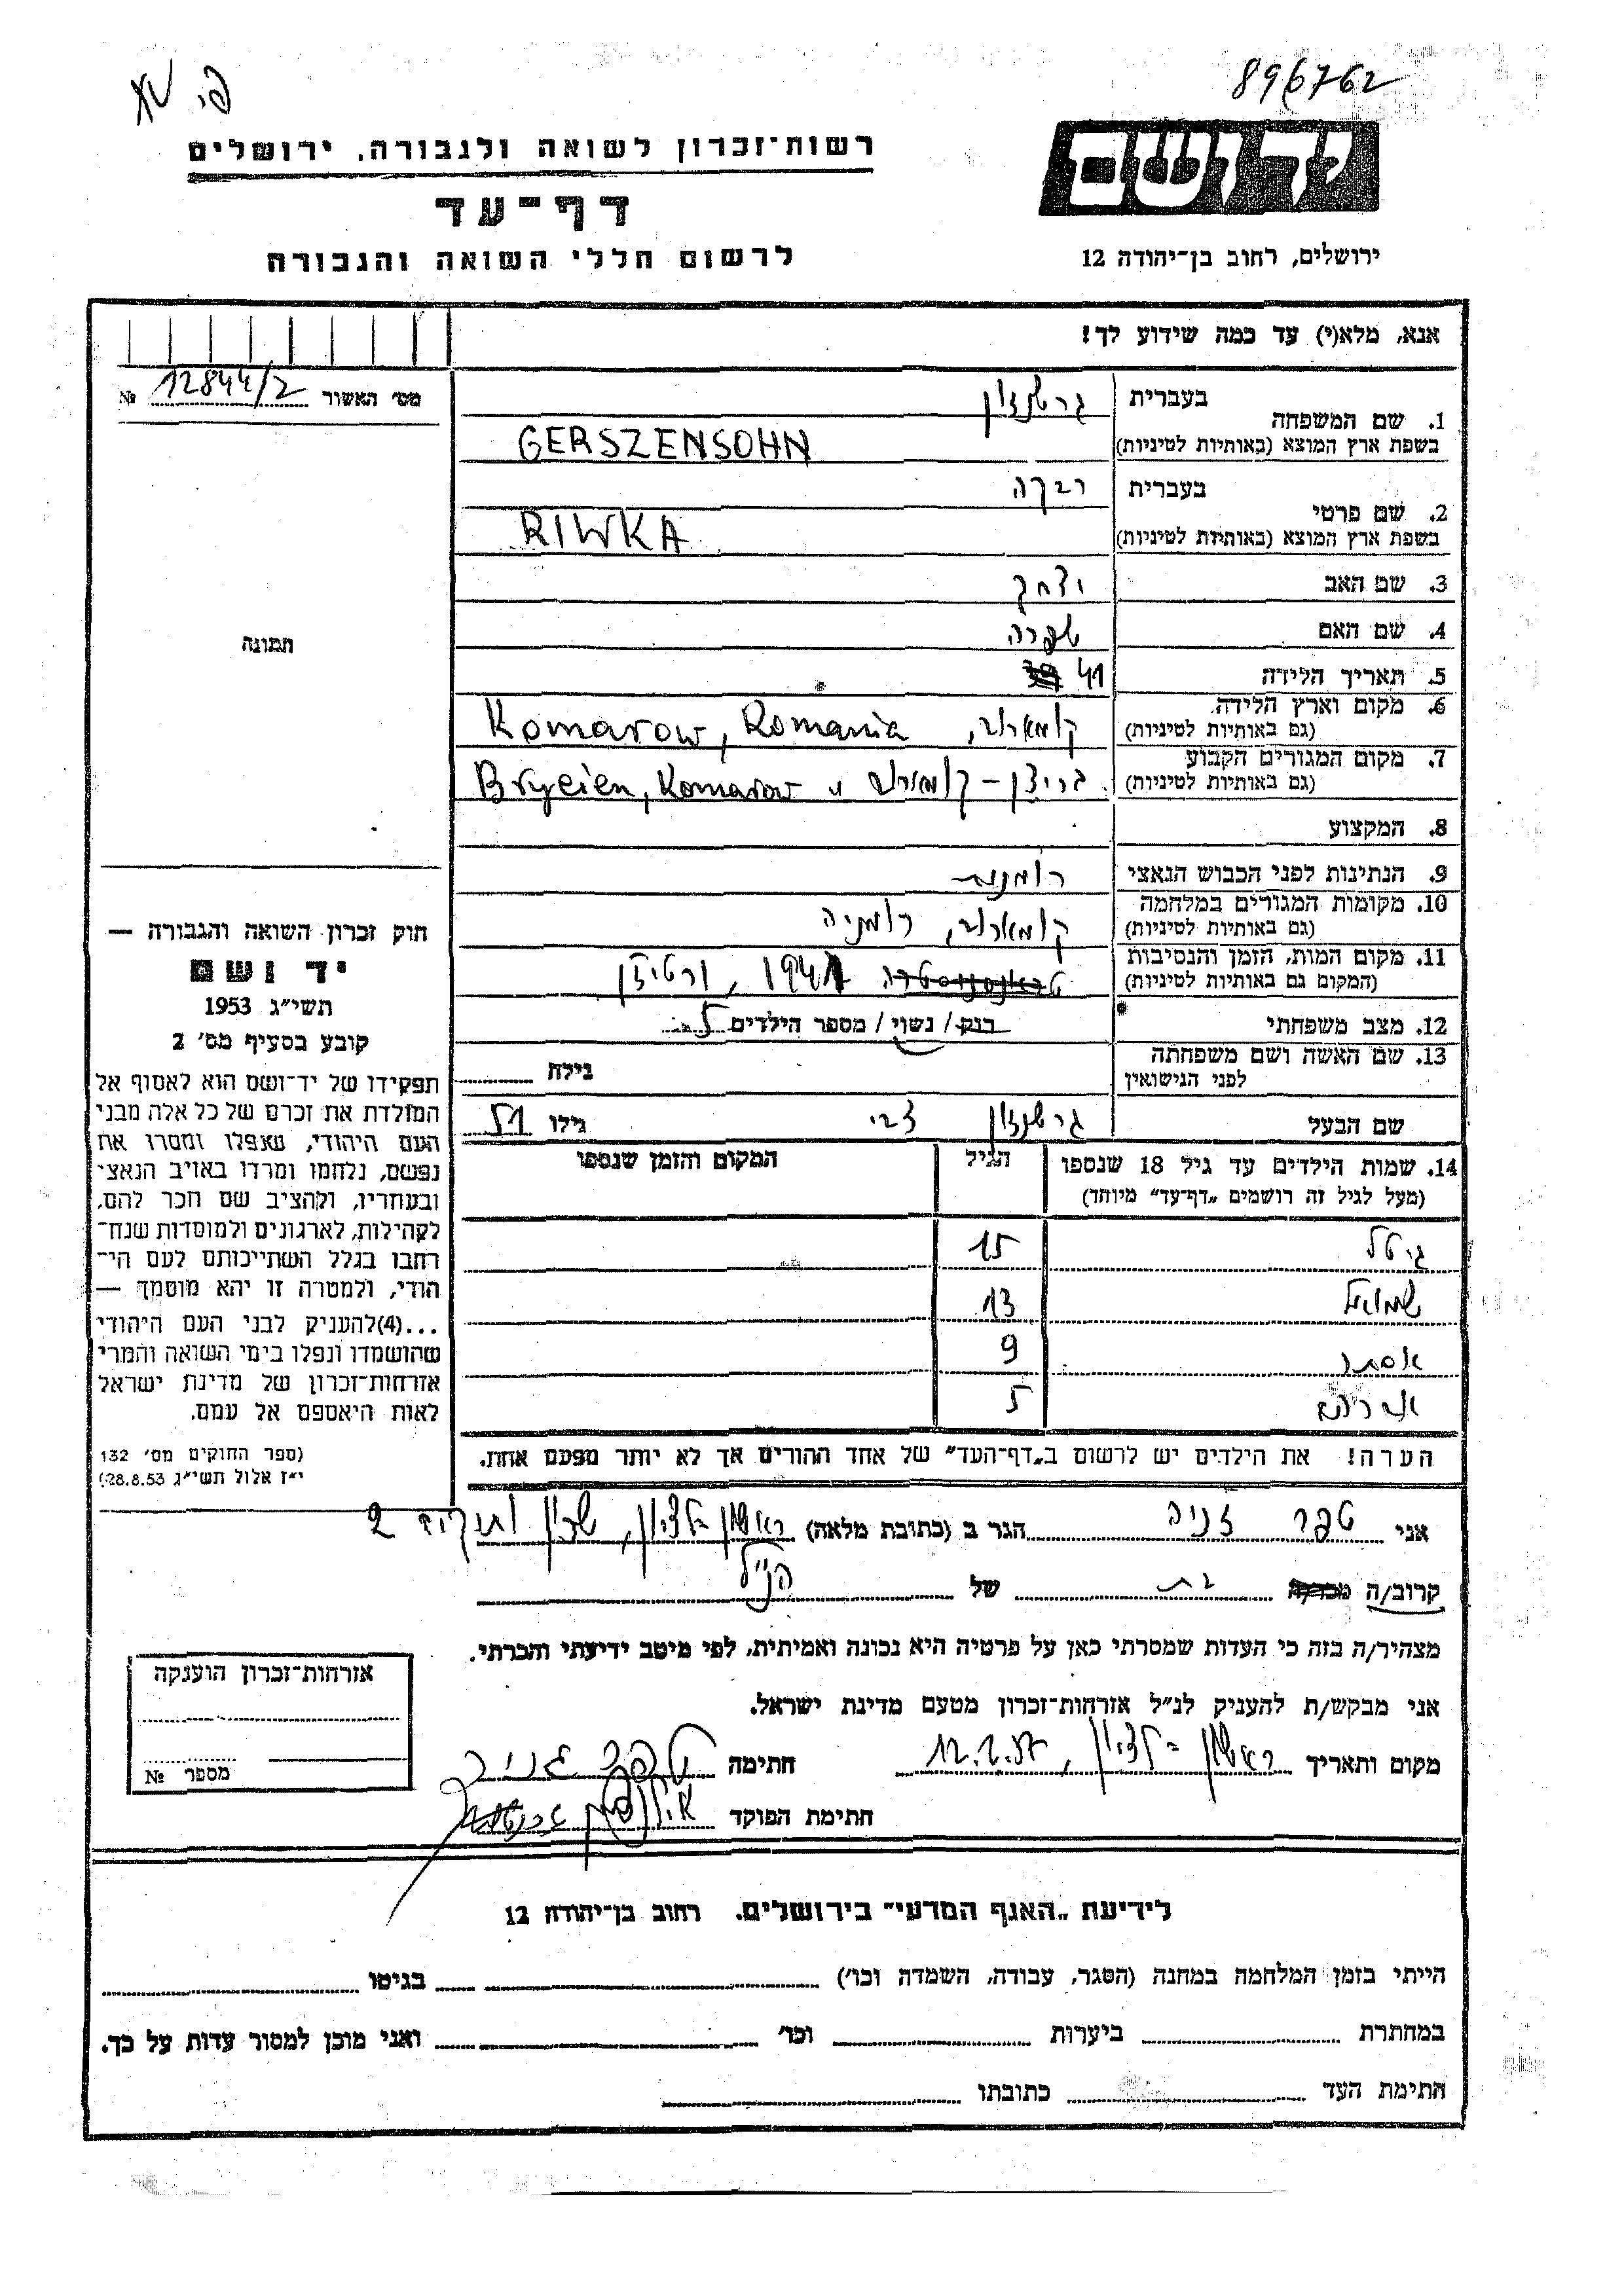 פ. אא
896762
רשות־זכרון לשואה ולגבורה, ירושלים
יד ושם
דף־עד
לרשום חללי השואה והגבורה
ירושלים, רחוב בן־יהודה 12
אנא, מלא(י) עד כמה שידוע לך!
מס׳ האשור 12844/2 №
1. שם המשפחה
בעברית גרשנזון
בשפת ארץ המוצא (באותיות לטיניות) GERSZENSOHN
2. שם פרטי
בעברית רבקה
בשפת ארץ המוצא (באותיות לטיניות) RIWKA
3. שם האב יצחק
4. שם האם שפרה
תמונה
5. תאריך הלידה 41
6. מקום וארץ הלידה
(גם באותיות לטיניות) קומארוב, Komarow, Romania
7. מקום המגורים הקבוע
(גם באותיות לטיניות) בריצ׳ן – קומארוב Komarow
8. המקצוע
9. הנתינות לפני הכבוש הנאצי רומנית
10. מקומות המגורים במלחמה
(גם באותיות לטיניות) קומארוב, רומניה
11. מקום המות, הזמן והנסיבות
(המקום גם באותיות לטיניות) טראנסניסטריה 1941,
12. מצב משפחתי רווק / נשוי / מספר הילדים 5
13. שם האשה ושם משפחתה
לפני הנישואין גילה
שם הבעל גרשנזון צבי גילו 51
14. שמות הילדים עד גיל 18 שנספו הגיל המקום והזמן שנספו
(מעל לגיל זה רושמים „דף־עד״ מיוחד)
גיטל 15
שמואל 13
אסתר 9
אברהם 5
הערה! את הילדים יש לרשום ב„דף־העד״ של אחד ההורים אך לא יותר מפעם אחת.
חוק זכרון השואה והגבורה —
יד ושם
תשי״ג 1953
קובע בסעיף מס׳ 2
תפקידו של יד־ושם הוא לאסוף אל
המולדת את זכרם של כל אלה מבני
העם היהודי, שנפלו ומסרו את
נפשם, נלחמו ומרדו באויב הנאצי
ובעוזריו, ולהציב שם וזכר להם,
לקהילות, לארגונים ולמוסדות שנח־
רבו בגלל השתייכותם לעם הי־
הודי, ולמטרה זו יהא מוסמך —
...(4)להעניק לבני העם היהודי
שהושמדו ונפלו בימי השואה והמרי
אזרחות־זכרון של מדינת ישראל
לאות היאספם אל עמם.
(ספר החוקים מס׳ 132
י״ז אלול תשי״ג 28.8.53)
אני טפר זניה הגר ב (כתובת מלאה) ראשון לציון, שכון ותיקים 2
קרוב/ה מכר/ה בת של הנ״ל
מצהיר/ה בזה כי העדות שמסרתי כאן על פרטיה היא נכונה ואמיתית, לפי מיטב ידיעתי והכרתי.
אני מבקש/ת להעניק לנ״ל אזרחות־זכרון מטעם מדינת ישראל.
מקום ותאריך ראשון לציון, חתימה טפר זניה
חתימת הפוקד
אזרחות־זכרון הוענקה
מספר №
לידיעת „האגף המדעי״ בירושלים, רחוב בן־יהודה 12
הייתי בזמן המלחמה במחנה (הסגר, עבודה, השמדה וכו׳) בגיטו
במחתרת ביערות וכו׳ ואני מוכן למסור עדות על כך.
חתימת העד כתובתו